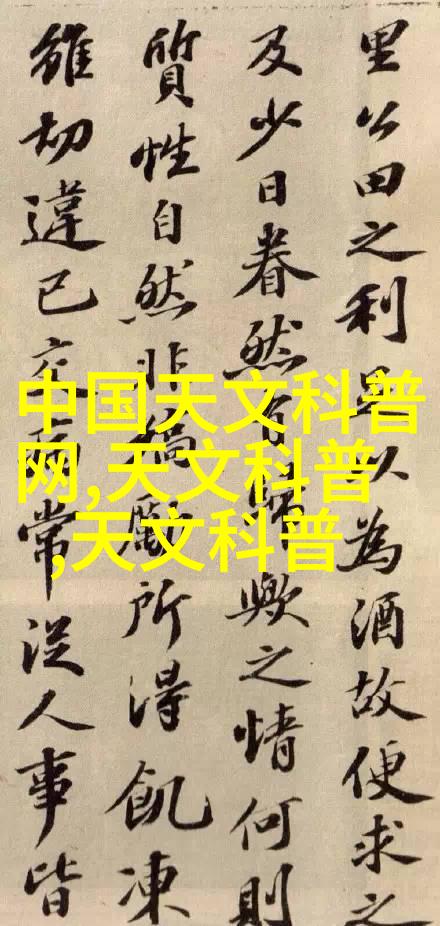 中国天文科普
网,天文科普
,天文科普
里公田之利足以為酒故便求之
及少日眷然有歸歟之情何則
質性自然非矯勵所得飢凍
雖切違己交病常從人事皆